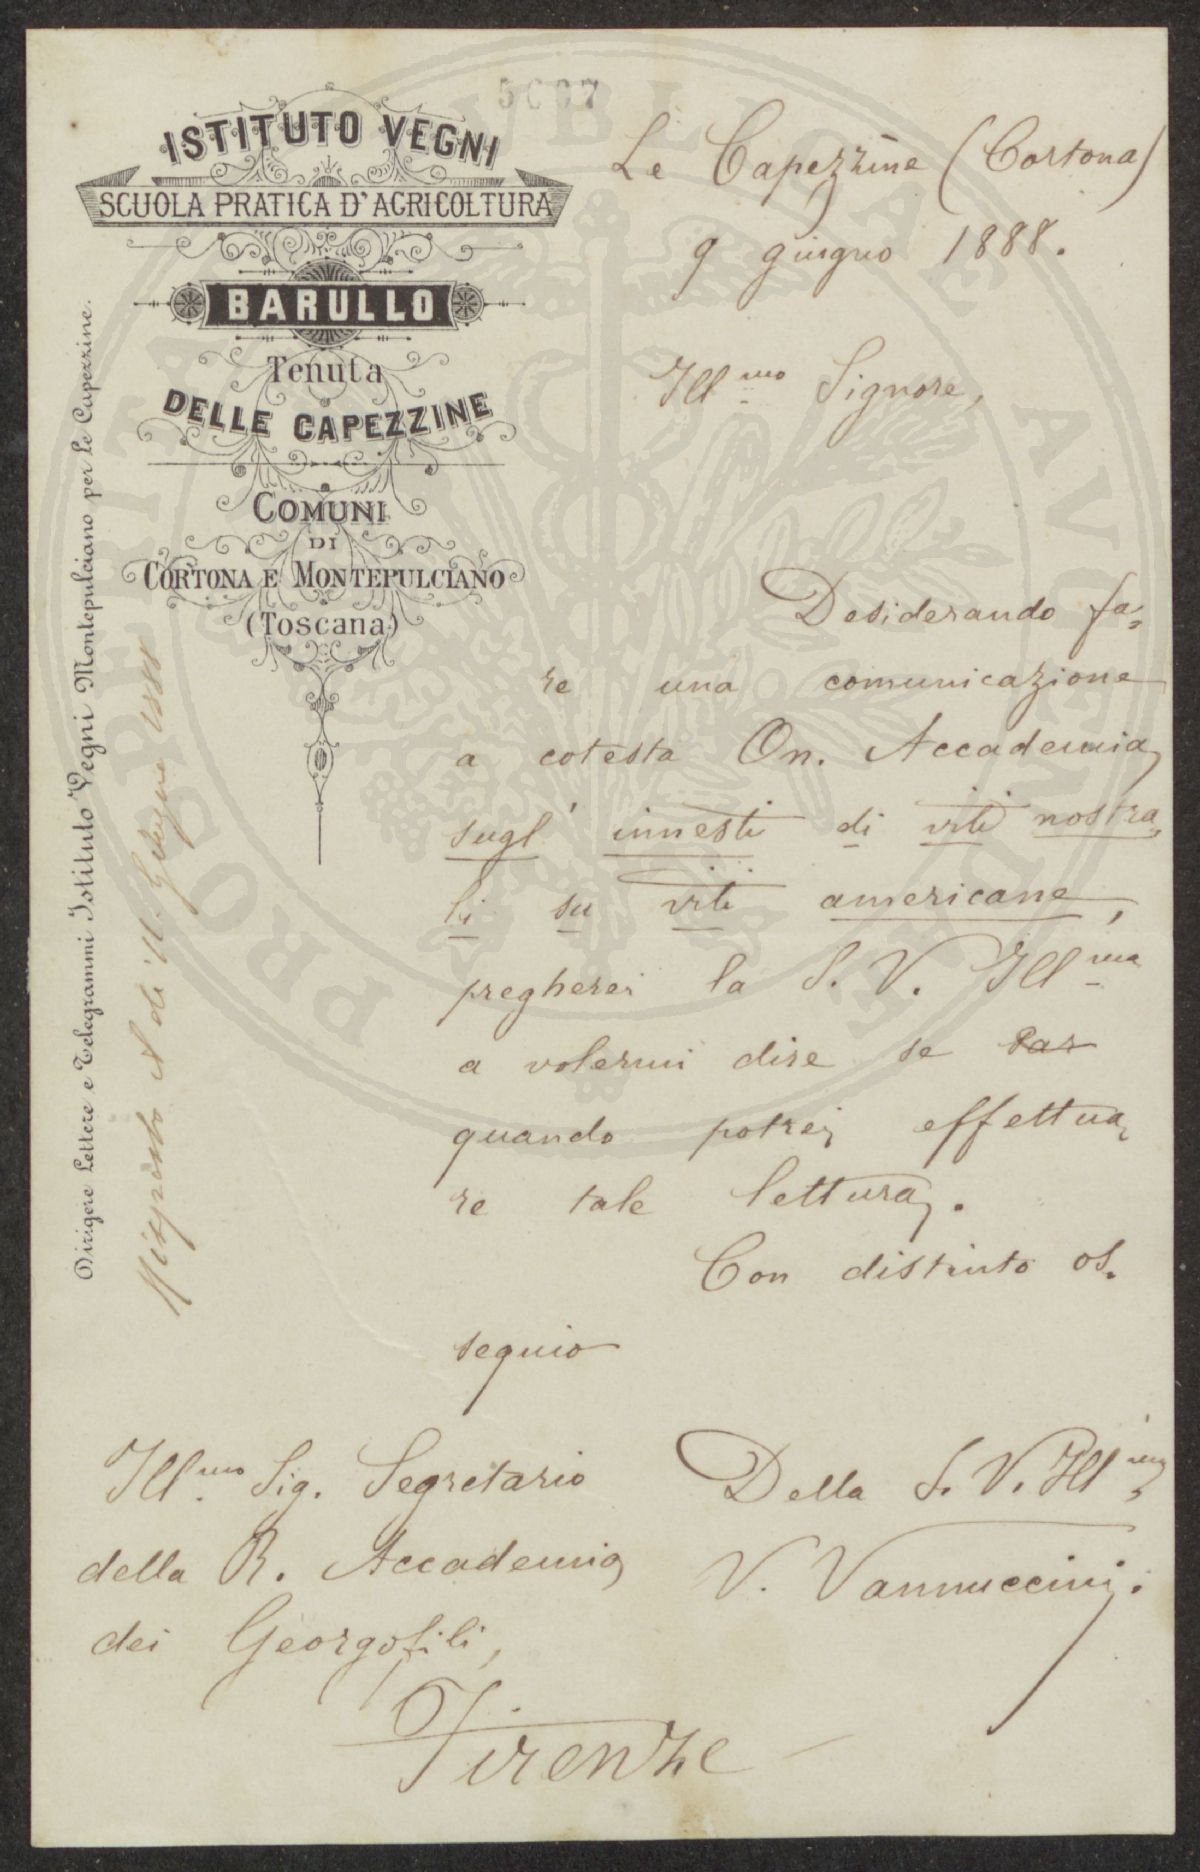 5607
ISTITUTO VEGNI
SCUOLA PRATICA D'AGRICOLTURA
BARULLO
Tenuta
DELLE CAPEZZINE
COMUNI
DI
CORTONA E MONTEPULCIANO
(TOSCANA)
Dirigere Lettere e Telegrammi Istituto Vegni Montepulciano per le Capezzine.
Risposto il dì 11. Giugno 1888
Le Capezzine (Cortona)
9 giugno 1888.
Ill.mo Signore,
Desiderando fa=
re una comunicazione
a cotesta On. Accademia
sugl' innesti di viti nostra=
li su viti americane,
pregherei la S. V. Ill.ma
a volermi dire se
quando potrei effettua
re tale lettura.
Con distinto os.
sequio
Della S. V. Ill.ma
V. Vannuccini.
Ill.mo Sig. Segretario
della R. Accademia
dei Georgofili,
Firenze
PROSPERITATI PVBLICAE AVGENDAE